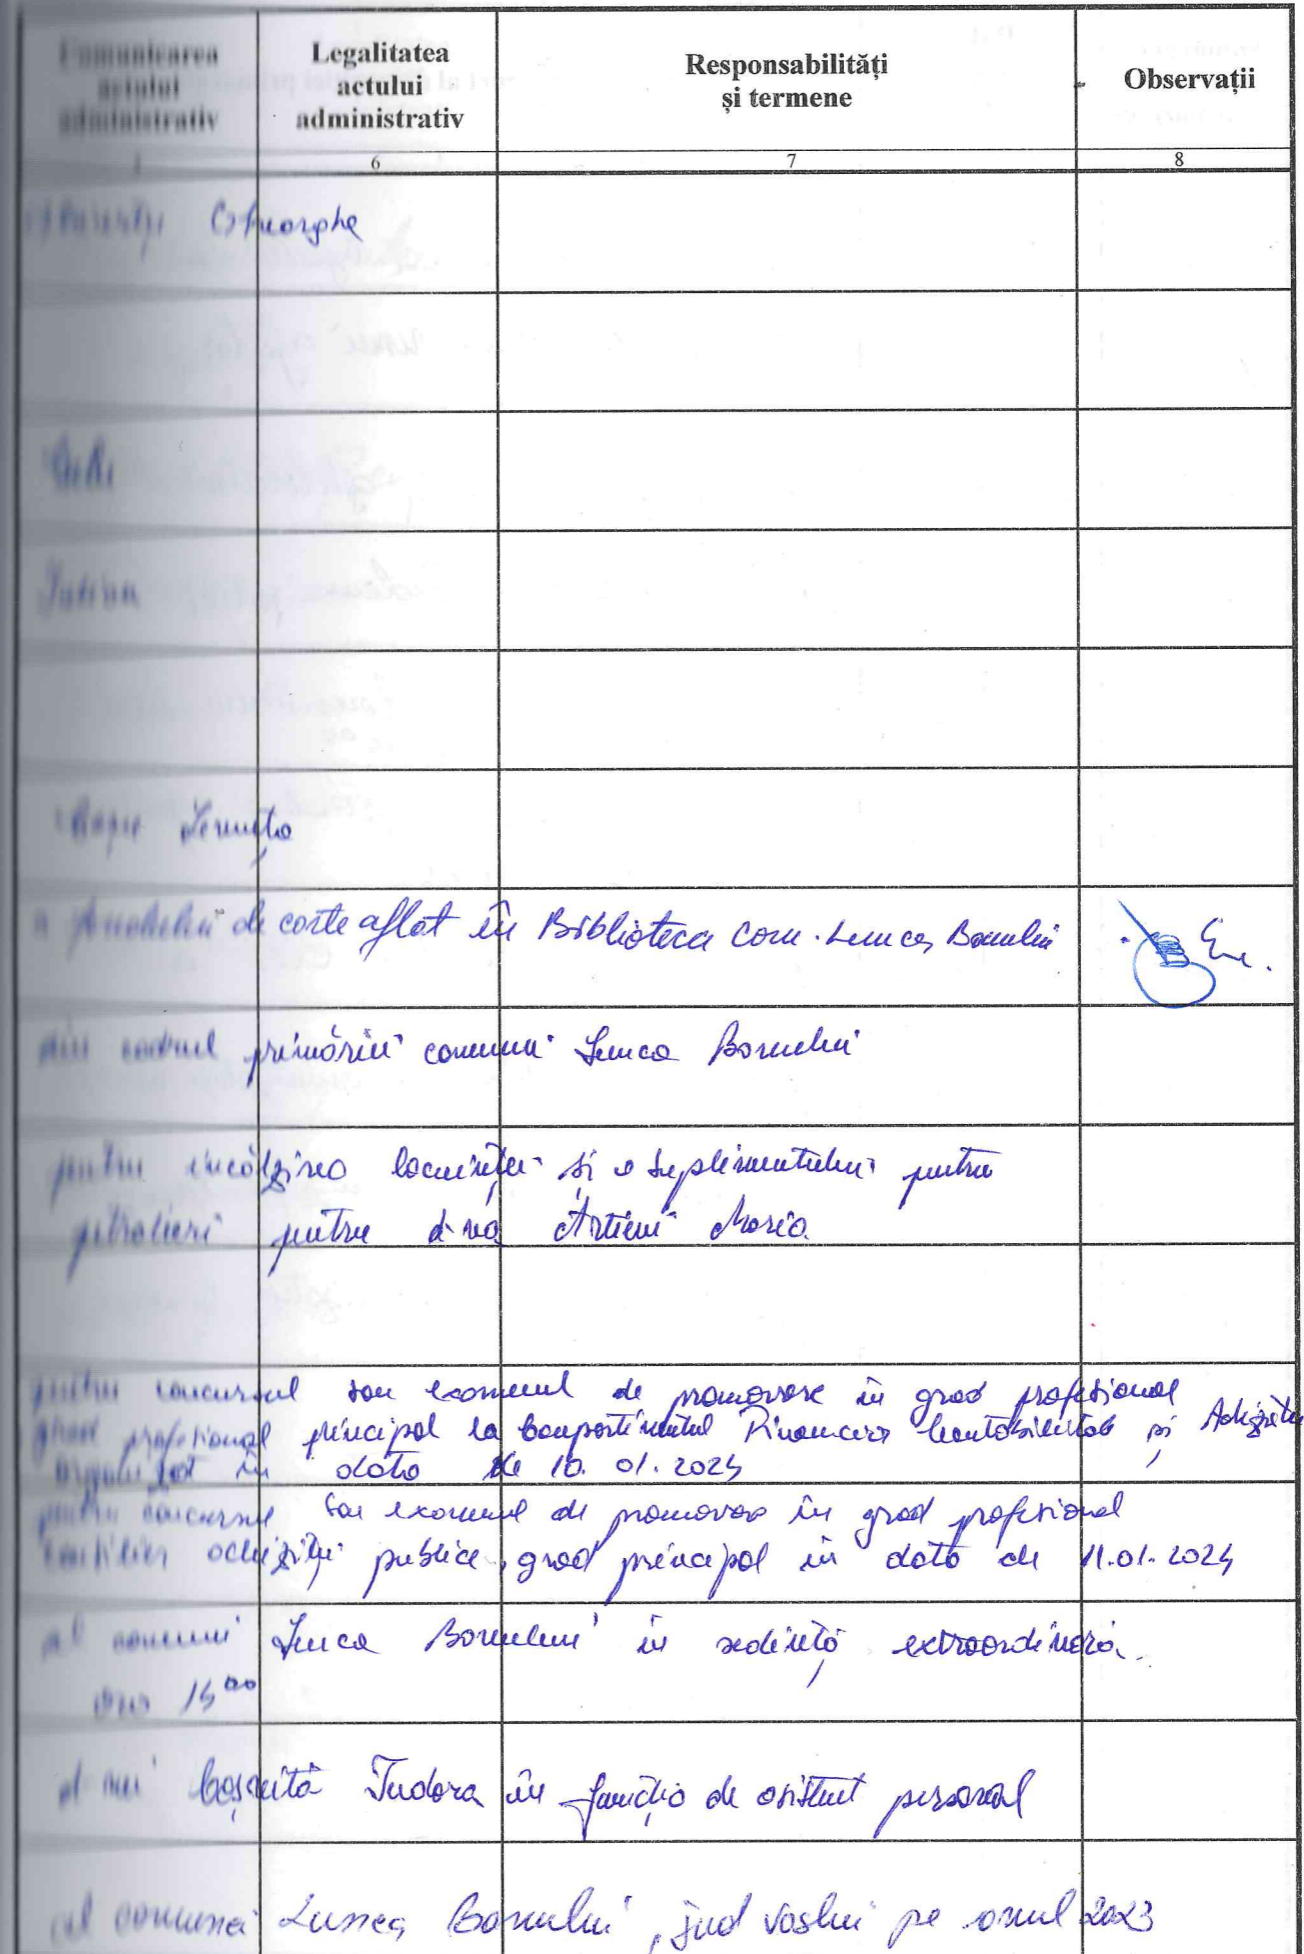 Comunicarea
actului
administrativ
Legalitatea
actului
administrativ
Responsabilități
și termene
Observații
6 7 8
Gheorghe
de carte aflat în Biblioteca com. Lunca Banului
din cadrul primăriei comunei Lunca Banului
pentru încălzirea locuinței și a suplimentului pentru
pentru d-na Artieni Maria
pentru concursul sau examenul de promovare în grad profesional
grad profesional principal la Compartimentul Financiar Contabilitate și Achiziții
organizat în data de 10.01.2024
pentru concursul sau examenul de promovare în grad profesional
consilier achiziții publice, grad principal în data de 11.01.2024
al comunei Lunca Banului în sedință extraordinară.
ora 14 00
d-nei Coșniță Tudora în funcția de asistent personal
al comunei Lunca Banului, jud Vaslui pe anul 2023